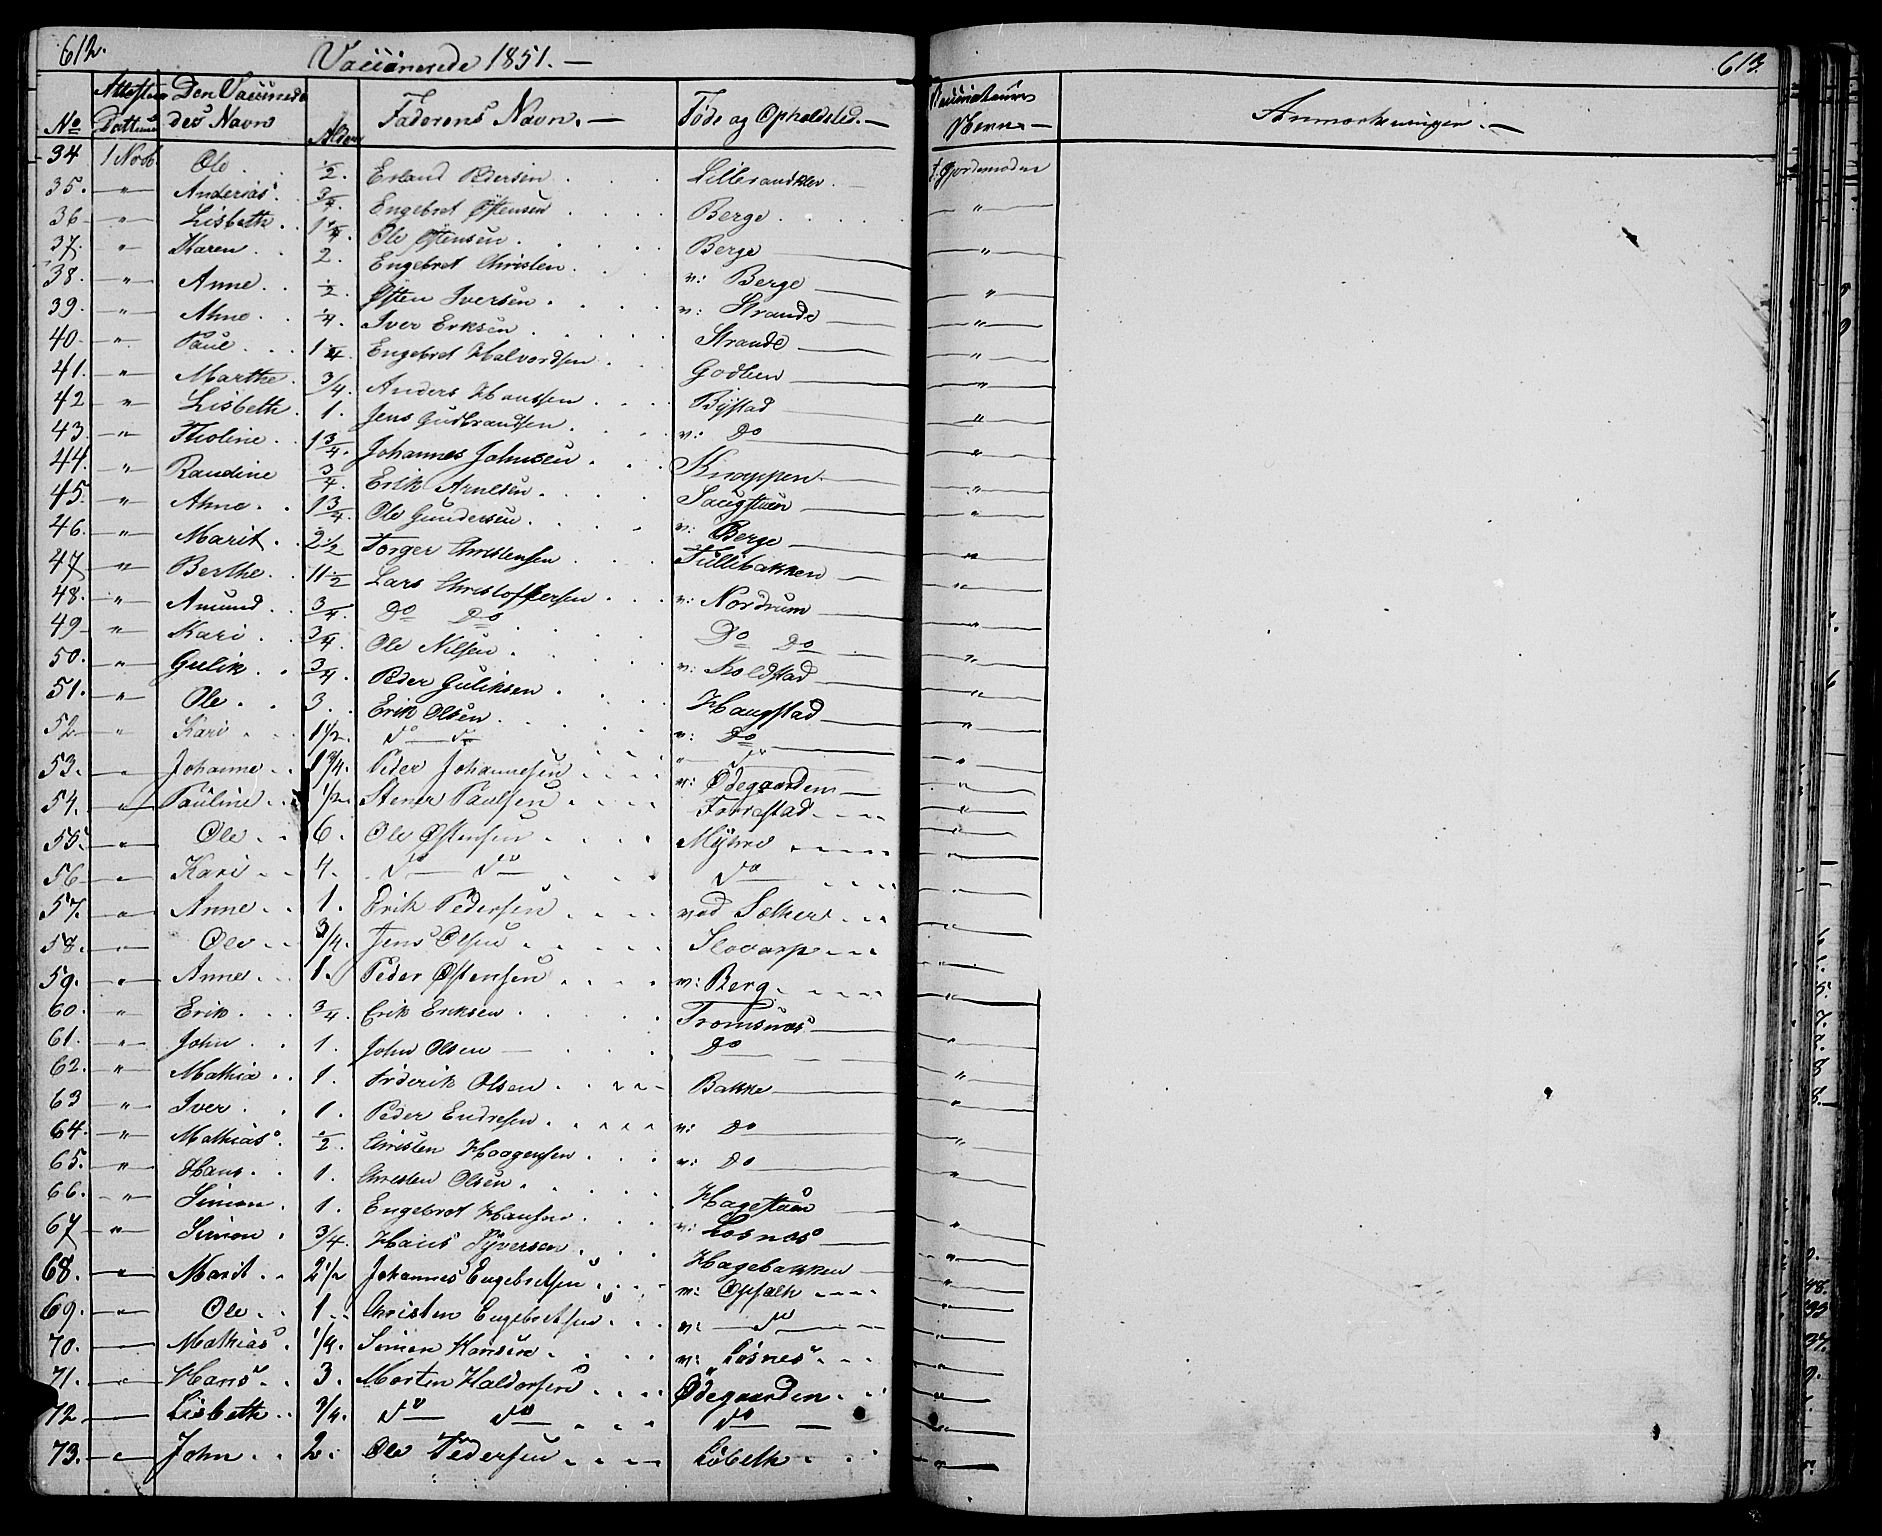 612.
Vaccinerede 1851. —
No Attestens Dattum Den Vaccinedes Navn Alder Faderens Navn. — Føde og Opholdsted. —
34 1 Novb. Ole ½. Erland Pedersen Lillerandklev
35. " Anderias ¾. Engebret Østensen Berge
36 " Lisbeth 1¼. Ole Østensen Berge
37. " Karen 2. Engebret Christen v: Berge
38. " Anne ½. Østen Iversen v: Strande
39. " Anne ¼. Iver Eriksen Strande
40. " Paul 1¼. Engebret Halvordsen Godlien
41. " Marthe 3/4. Anders Hanssen Bÿstad
42 " Lisbeth 1. Jens Gudbrandsen v: Do
43. " Tholine 1¾. Johannes Johnsen Knappen
44. " Randine ¾. Erik Arnesen Saugstuen
45. " Anne 1¾. Ole Gundersen v: Berge
46. " Marit 2½ Torger Christensen Tullibakken
47 " Berthe 11½ Lars Christoffersen v: Nordrum
48. " Amund ¾. Do Do Do Do
49 " Kari ¾. Ole Nilsen v: Koldstad
50. " Gulik ¾. Peder Guliksen Haugstad
51. " Ole 3. Erik Olsen v: Do
52 " Kari 1½. do do " do
53. " Johanne 1¾. Peder Johannesen v: Ødegaarden
54. " Pauline 1/2. Stener Paulsen Forrestad
55. " Ole 6. Ole Østensen Mÿhre
56 " Kari 4. do do do
57. " Anne 1. Erik Pedersen ved Sælher
58. " Ole 3/4. Jens Olsen Slovarp
59. " Anne 1. Peder Østensen v: Berg
60. " Erik ¾. Erik Eriksen Tromsnæs
61. " John 1. John Olsen Do
62. " Mathia 1. Frederik Olsen Bakke
63 " Iver 1. Peder Endresen v: Do
64. " Mathias ½. Christen Haagensen v: Do
65. " Hans 1. Christen Olsen Hagestuen
66. " Simon 1. Engebret Hansen v: Losnæs
67 " Simon 3/4. Hans Syversen Hagebakken
68. " Marit 2½ Johannes Engebretsen v: Offalh
69. " Ole 1. Christen Engebretsen v: do
70. Mathias 1/4. Simen Hansen v: Losnes
71. " Hans 3. Morten Haldorsen Ødegaarden
72 Lisbeth 3/4. do do do
73. " John 2. Ole Pedersen Løbelh
613.
Vaccinateurens Navn — Anmærkninger. —
f. Gjordemoder